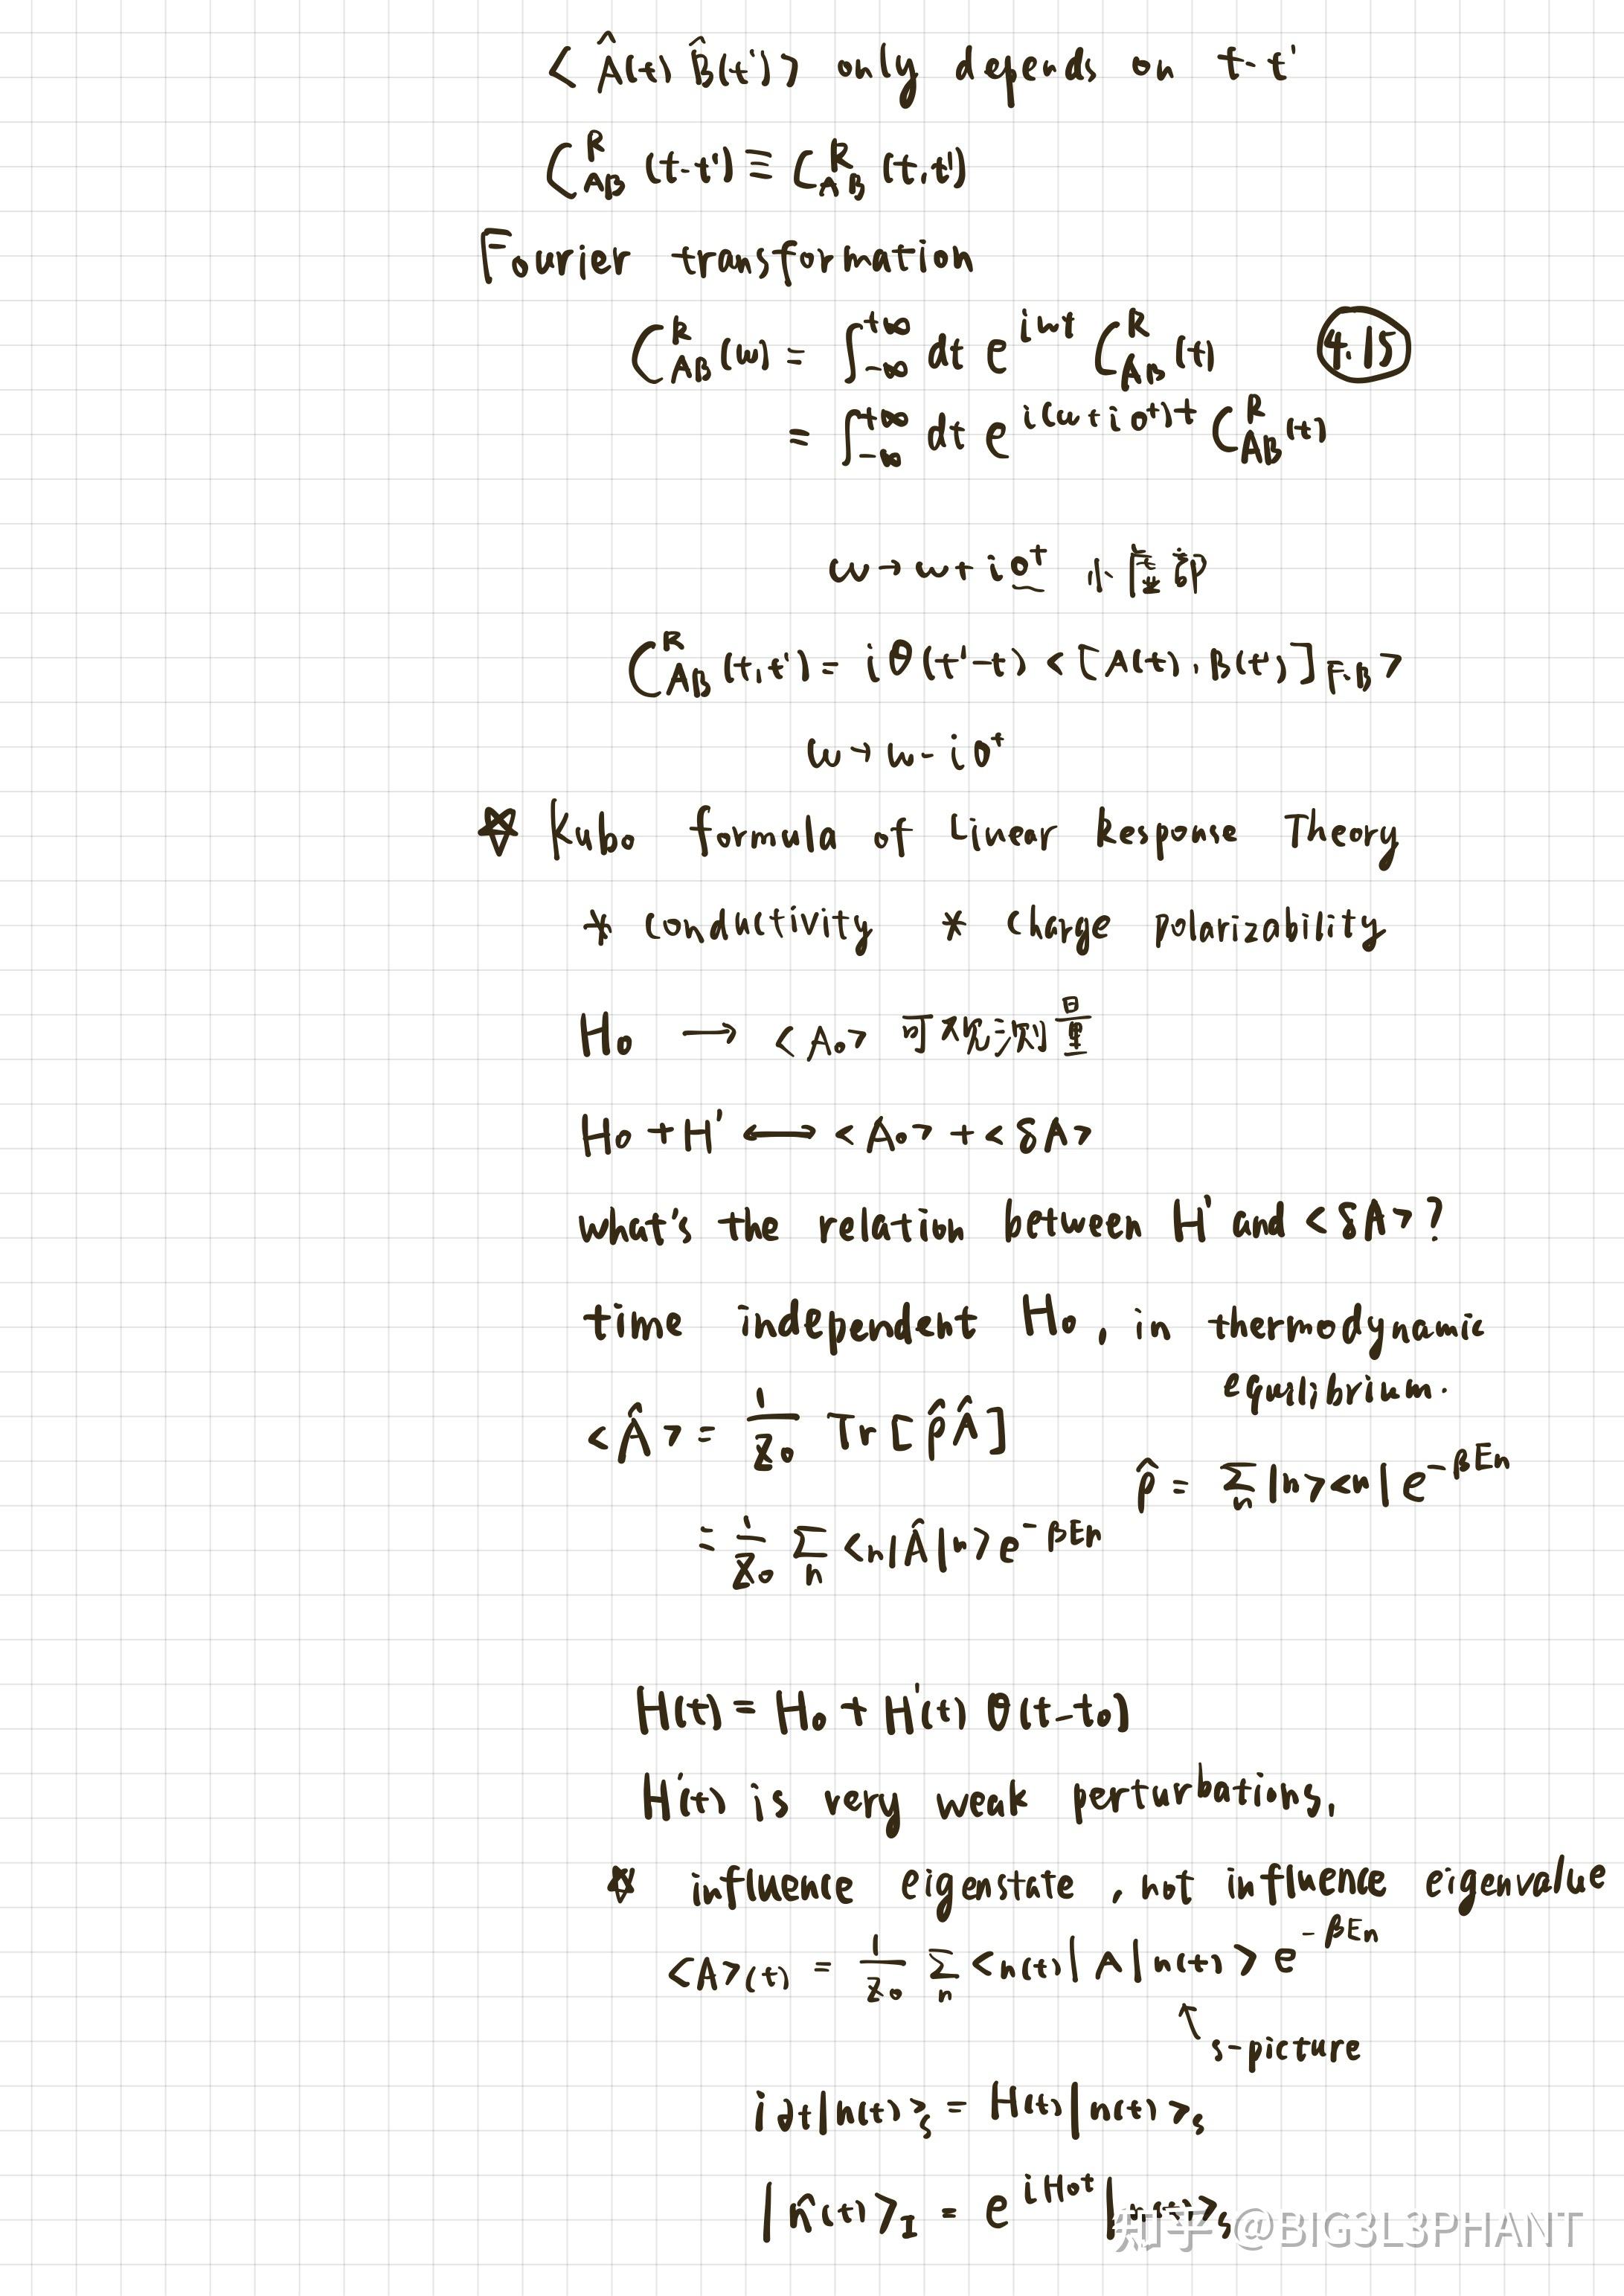 < Â(t) B̂(t') > only depends on t-t'
C^R_{AB} (t-t') ≡ C^R_{AB} (t,t')
Fourier transformation
C^R_{AB}(ω) = ∫_{-∞}^{+∞} dt e^{iωt} C^R_{AB}(t) 4.15
= ∫_{-∞}^{+∞} dt e^{i(ω+i0⁺)t} C^R_{AB}(t)
ω → ω + i0⁺ 小虚部
C^R_{AB}(t,t') = iθ(t'-t) < [A(t), B(t')]_{F.B} >
ω → ω - i0⁺
☆ Kubo formula of Linear Response Theory
* conductivity * charge polarizability
H₀ → <A₀> 可观测量
H₀ + H' ⟷ <A₀> + <δA>
what's the relation between H' and <δA>?
time independent H₀, in thermodynamic
equilibrium.
<Â> = 1/Z₀ Tr[ρ̂Â]
ρ̂ = Σ_n |n><n| e^{-βEn}
= 1/Z₀ Σ_n <n|Â|n> e^{-βEn}
H(t) = H₀ + H'(t) θ(t-t₀)
H'(t) is very weak perturbations.
☆ influence eigenstate, not influence eigenvalue
<A>(t) = 1/Z₀ Σ_n <n(t)| A |n(t)> e^{-βEn}
↖ s-picture
i∂t|n(t)>_s = H(t)|n(t)>_s
|n̂(t)>_I = e^{iH₀t}|n(t)>_s
知乎 @BIG3L3PHANT